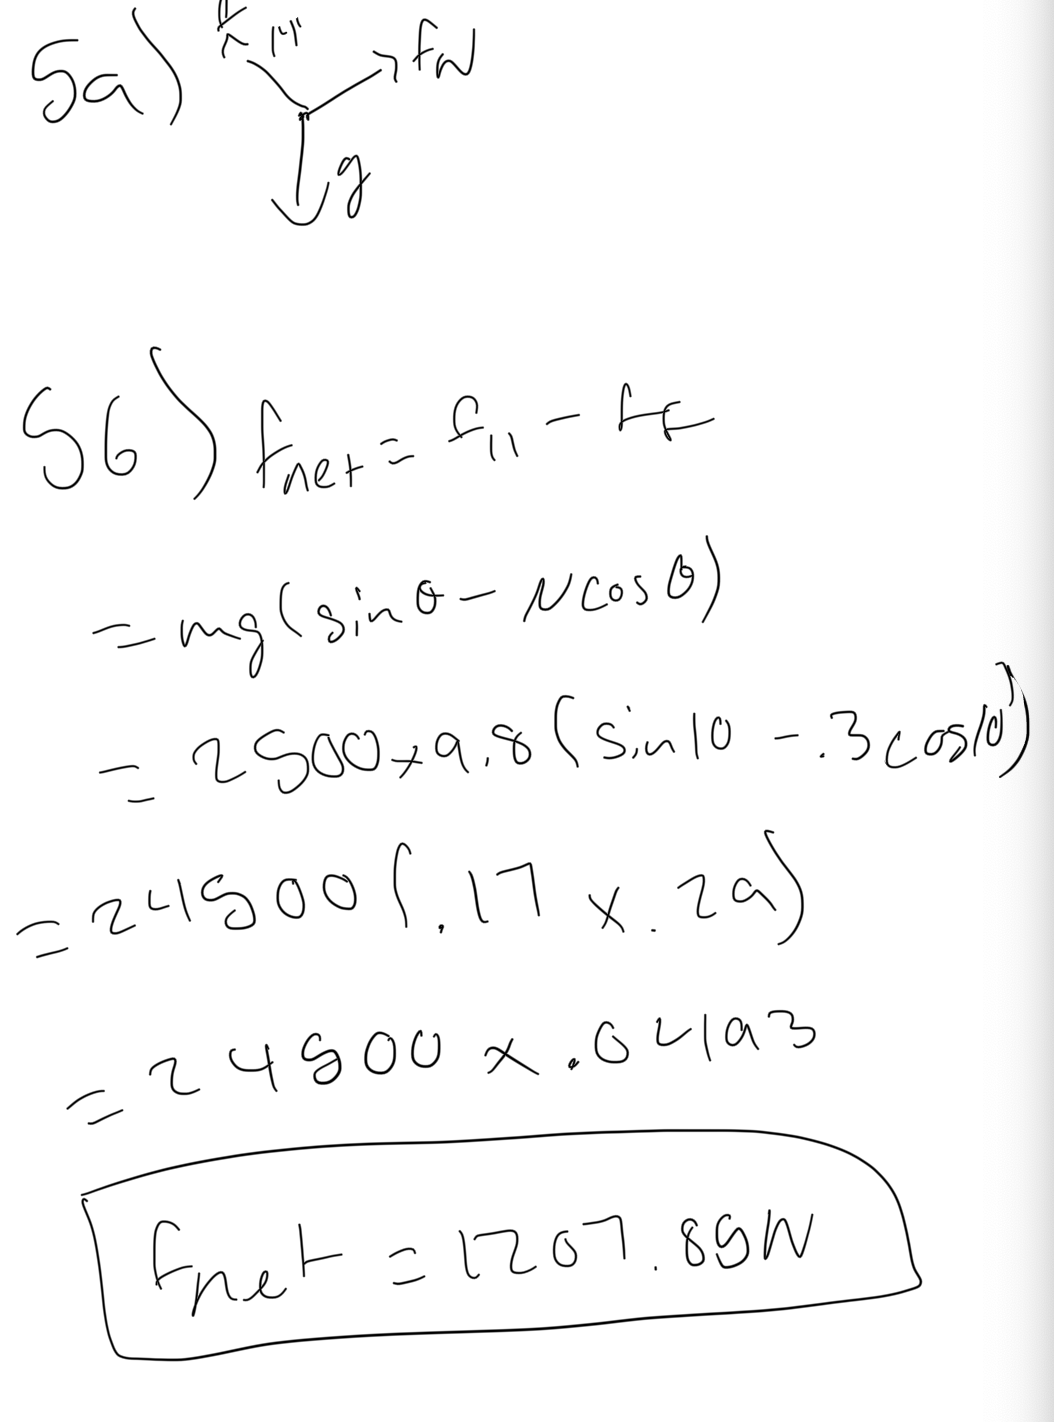 5a)
fN
g
5b) fnet = f11 - fF
= mg(sinθ - Ncosθ)
= 2500x9.8(sin10 - .3cos10)
= 24500(.17 x .29)
= 24500 x .0493
fnet = 1207.85N